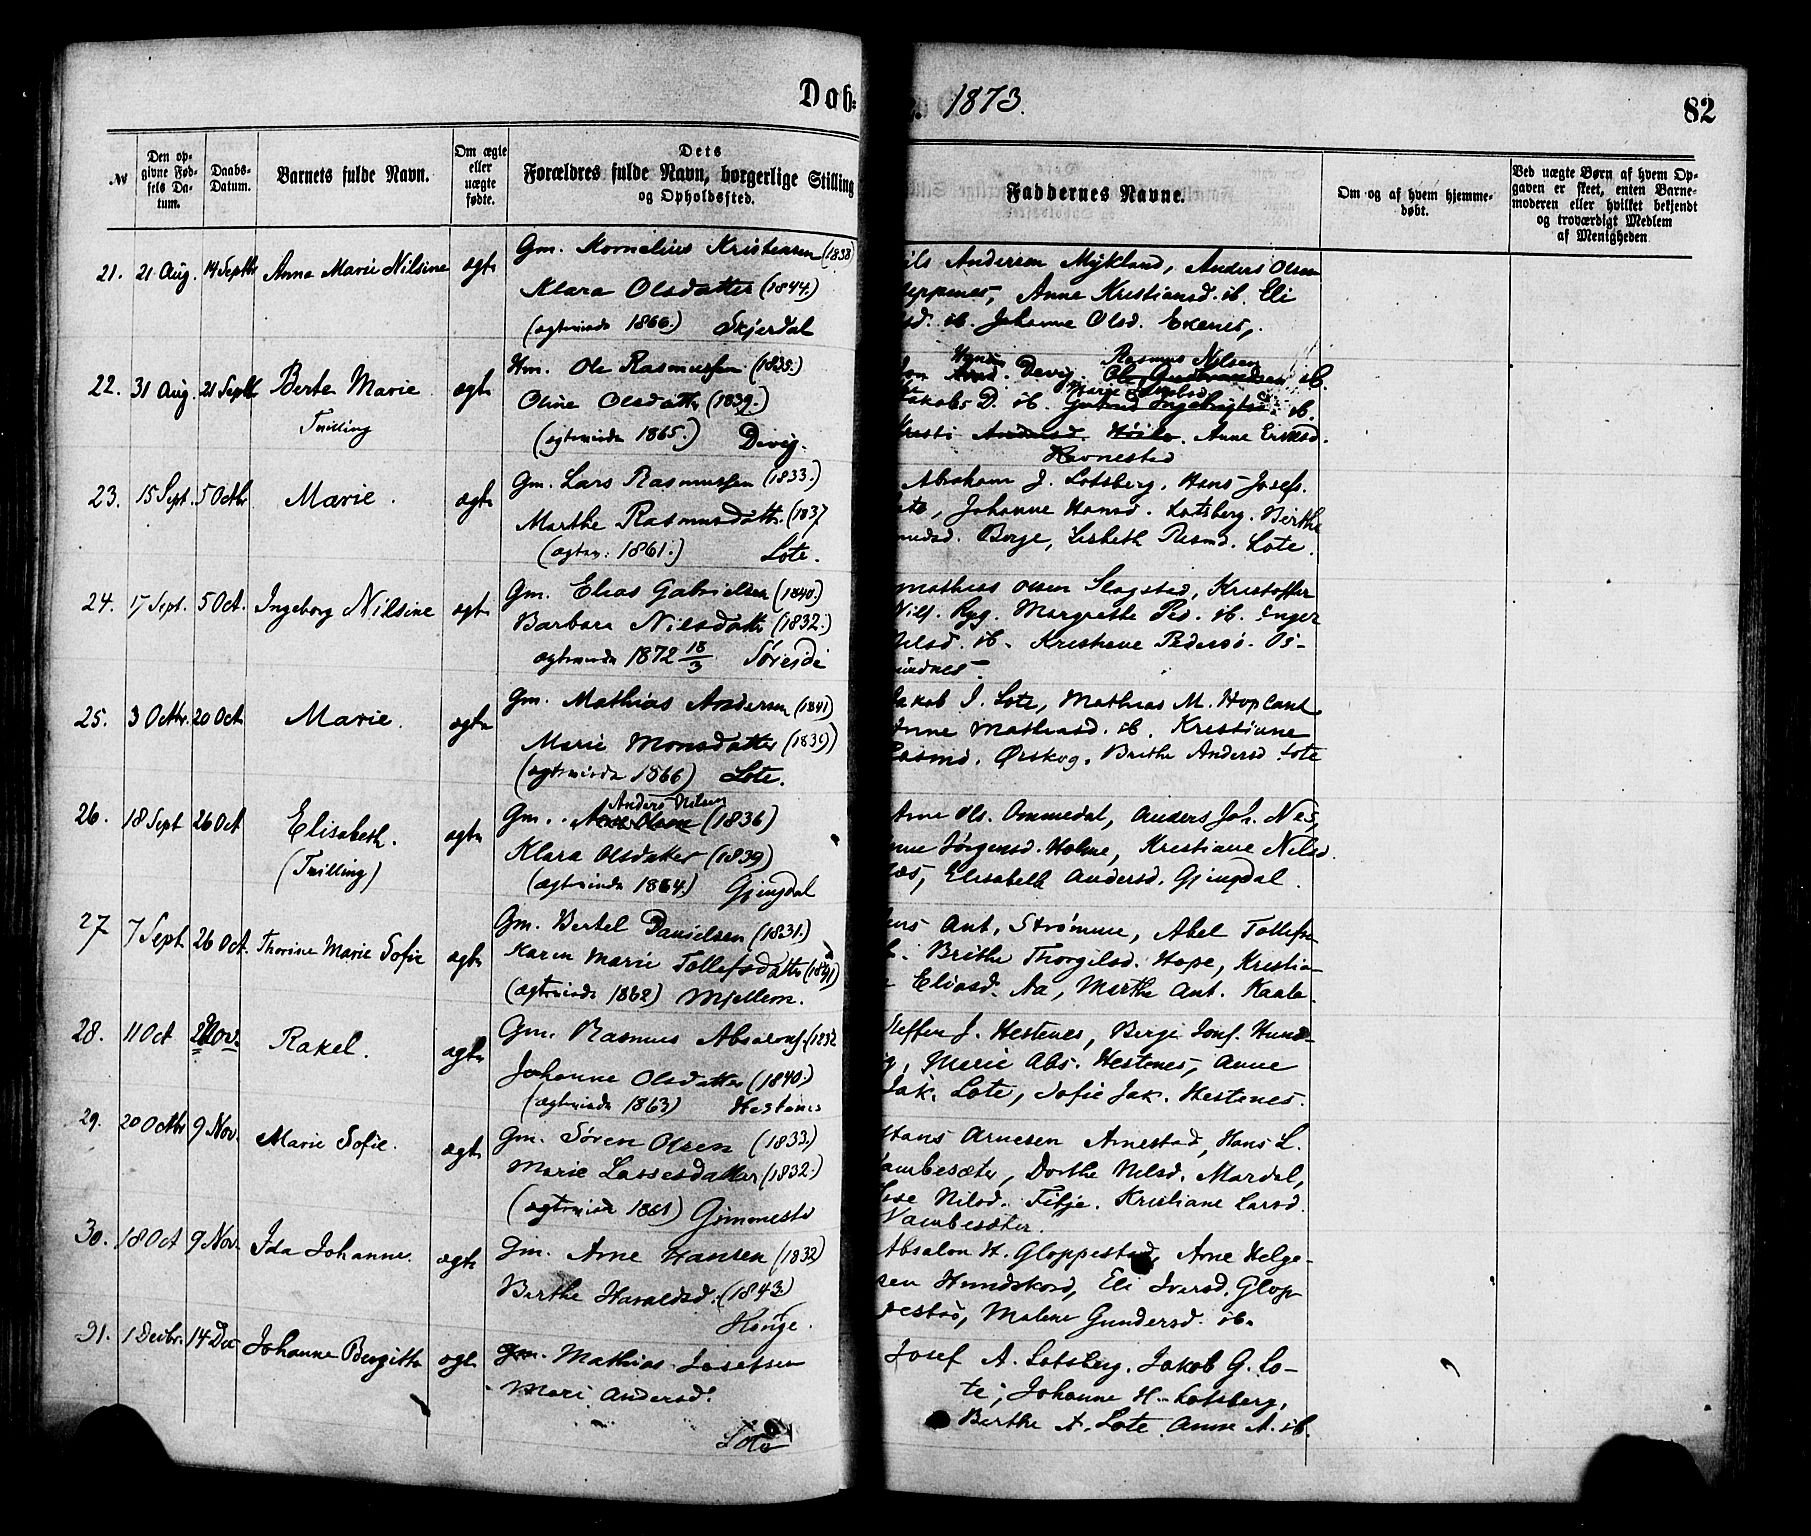 Dob:
1873.
82
№
Den opgivne Fødsels Datum.
Daabs-Datum.
Barnets fulde Navn.
Om ægte eller uægte fødte.
Dets Forældres fulde Navn, borgerlige Stilling og Opholdssted.
Faddernes Navne.
Om og af hvem hjemmedøbt.
Ved uægte Børn af hvem Opgaven er skeet, enten Barnemoderen eller hvilket bekjendt og troværdigt Medlem af Menigheden
21. 21 Aug. 14 Septb Anna Marie Nilsine ægte
Gm. Kornelius Kristensen (1838)
Klara Olsdatter (1844.)
(ægteviede 1866.) Skjerdal
ils Andersen Mykland, Anders Olsen
Anne Kristiansd. ib. Eli
sd. ib. Johanne Olsd. Exenes,
22. 31 Aug. 21 Septb Berte Marie ægte
Tvilling
Hm. Ole Rasmussen (1835.)
Oline Olsdatter (1839.)
(ægteviede 1865.) Devig.
Rasmus Nilsen
Devig. ib.
Jakobs D. ib. ib.
Kresti Andersd. Anne Eriksd.
Hovnestad
23. 15 Sept. 5 Octb. Marie. ægte
Gm. Lars Rasmussen (1833.)
Marthe Rasmusdatt. (1837
(ægtev: 1861.) Lote.
Abraham J. Lotsberg. Hans Josefs.
Lote, Johanne Hansd. Lotsberg. Birthe
Berge, Lisbeth Rasmd. Lote.
24. 17 Sept. 5 Oct. Ingeborg Nilsine ægte
Gm. Elias Gabrielsen (1840.)
Barbara Nilsdatte (1832.)
ægteviede 1872 18/3 Søreide
mathias Olsen Slagstad, Kristoffer
Nils. Ryg. Margrethe Ped. ib. Inger
Nelsd. ib. Kristiane Pedersd. Os-
mundnes.
25. 3 Octbr. 20 Oct Marie. ægte
Gm. Mathias Andersen (1841)
Marie Monsdatter (1839)
(ægteviede 1866) Lote.
Jakob I. Lote, Mathias M. Hopland
Anne Mathiasd. ib. Kristiane
Rasmd. Ørskog. Brithe Andersd. Lote
26. 18 Sept 26 Oct Elisabeth. ægte
(Tvilling)
Anders Nilsen
Gm. Arne Olsen (1836)
Klara Olsdatter (1839)
(ægteviede 1864.) Gjengdal
Arne Ols. Ommedal, Anders Joh. Nes,
Anne Jørgensd. Holme, Kristiane Nilsd.
Nes, Elisabeth Andersd. Gjengdal.
27 7 Sept 26 Oct. Thorine Marie Sofie ægte
Gm. Bertel Danielsen (1831.)
Karen Marie Tollefsdatte
(ægteviede 1868) Mjellem.
Ant. Strømme, Abel Tollefs-
Brithe Thorgilsd. Hope, Kristia-
Eliasd. Aa, Marthe Ant. Kaala-
28. 11 Oct 2 Nov. Rakel. ægte
Gm. Rasmus Absalons. (1832
Johanne Olsdatter (1840.)
(ægteviede 1863) Hestenes
Steffen J. Hestenes, Berge Jonf. Hund-
Marie Abs. Hestenes, Anne
Jak. Lote, Sofie Jak. Hestenes.
29. 20 Octbr 9 Nov. Marie Sofie. ægte
Gm. Søren Olsen (1833.)
Marie Lassesdatter (1832.)
(ægteviede 1861) Gimmesta
Hans Arnesen Arnestad, Hans L.
Vambesæter, Dorthe Nilsd. Mardal,
Nilsd. Fitje. Kristiane Larsd.
Vambesæter.
30. 18 Oct 9 Nov. Ida Johanne. ægte
Gm. Arne Hansen (1832)
Berthe Haraldsd. (1843.)
Hauge.
Absalon H. Gloppestad, Arne Helge-
sen Hundskord, Eli Iversd. Glop-
pestad, Malene Gundersd. ib.
31. 1 Decbr. 14 Dec Johanne Bergitta ægte
Gm. Mathias Josefsen
Mari Andersd.
Lote
Josef A. Lotsberg. Jakob G. Lo-
te; Johanne H. Lotsberg,
Berthe A. Lote Anne A. ib.